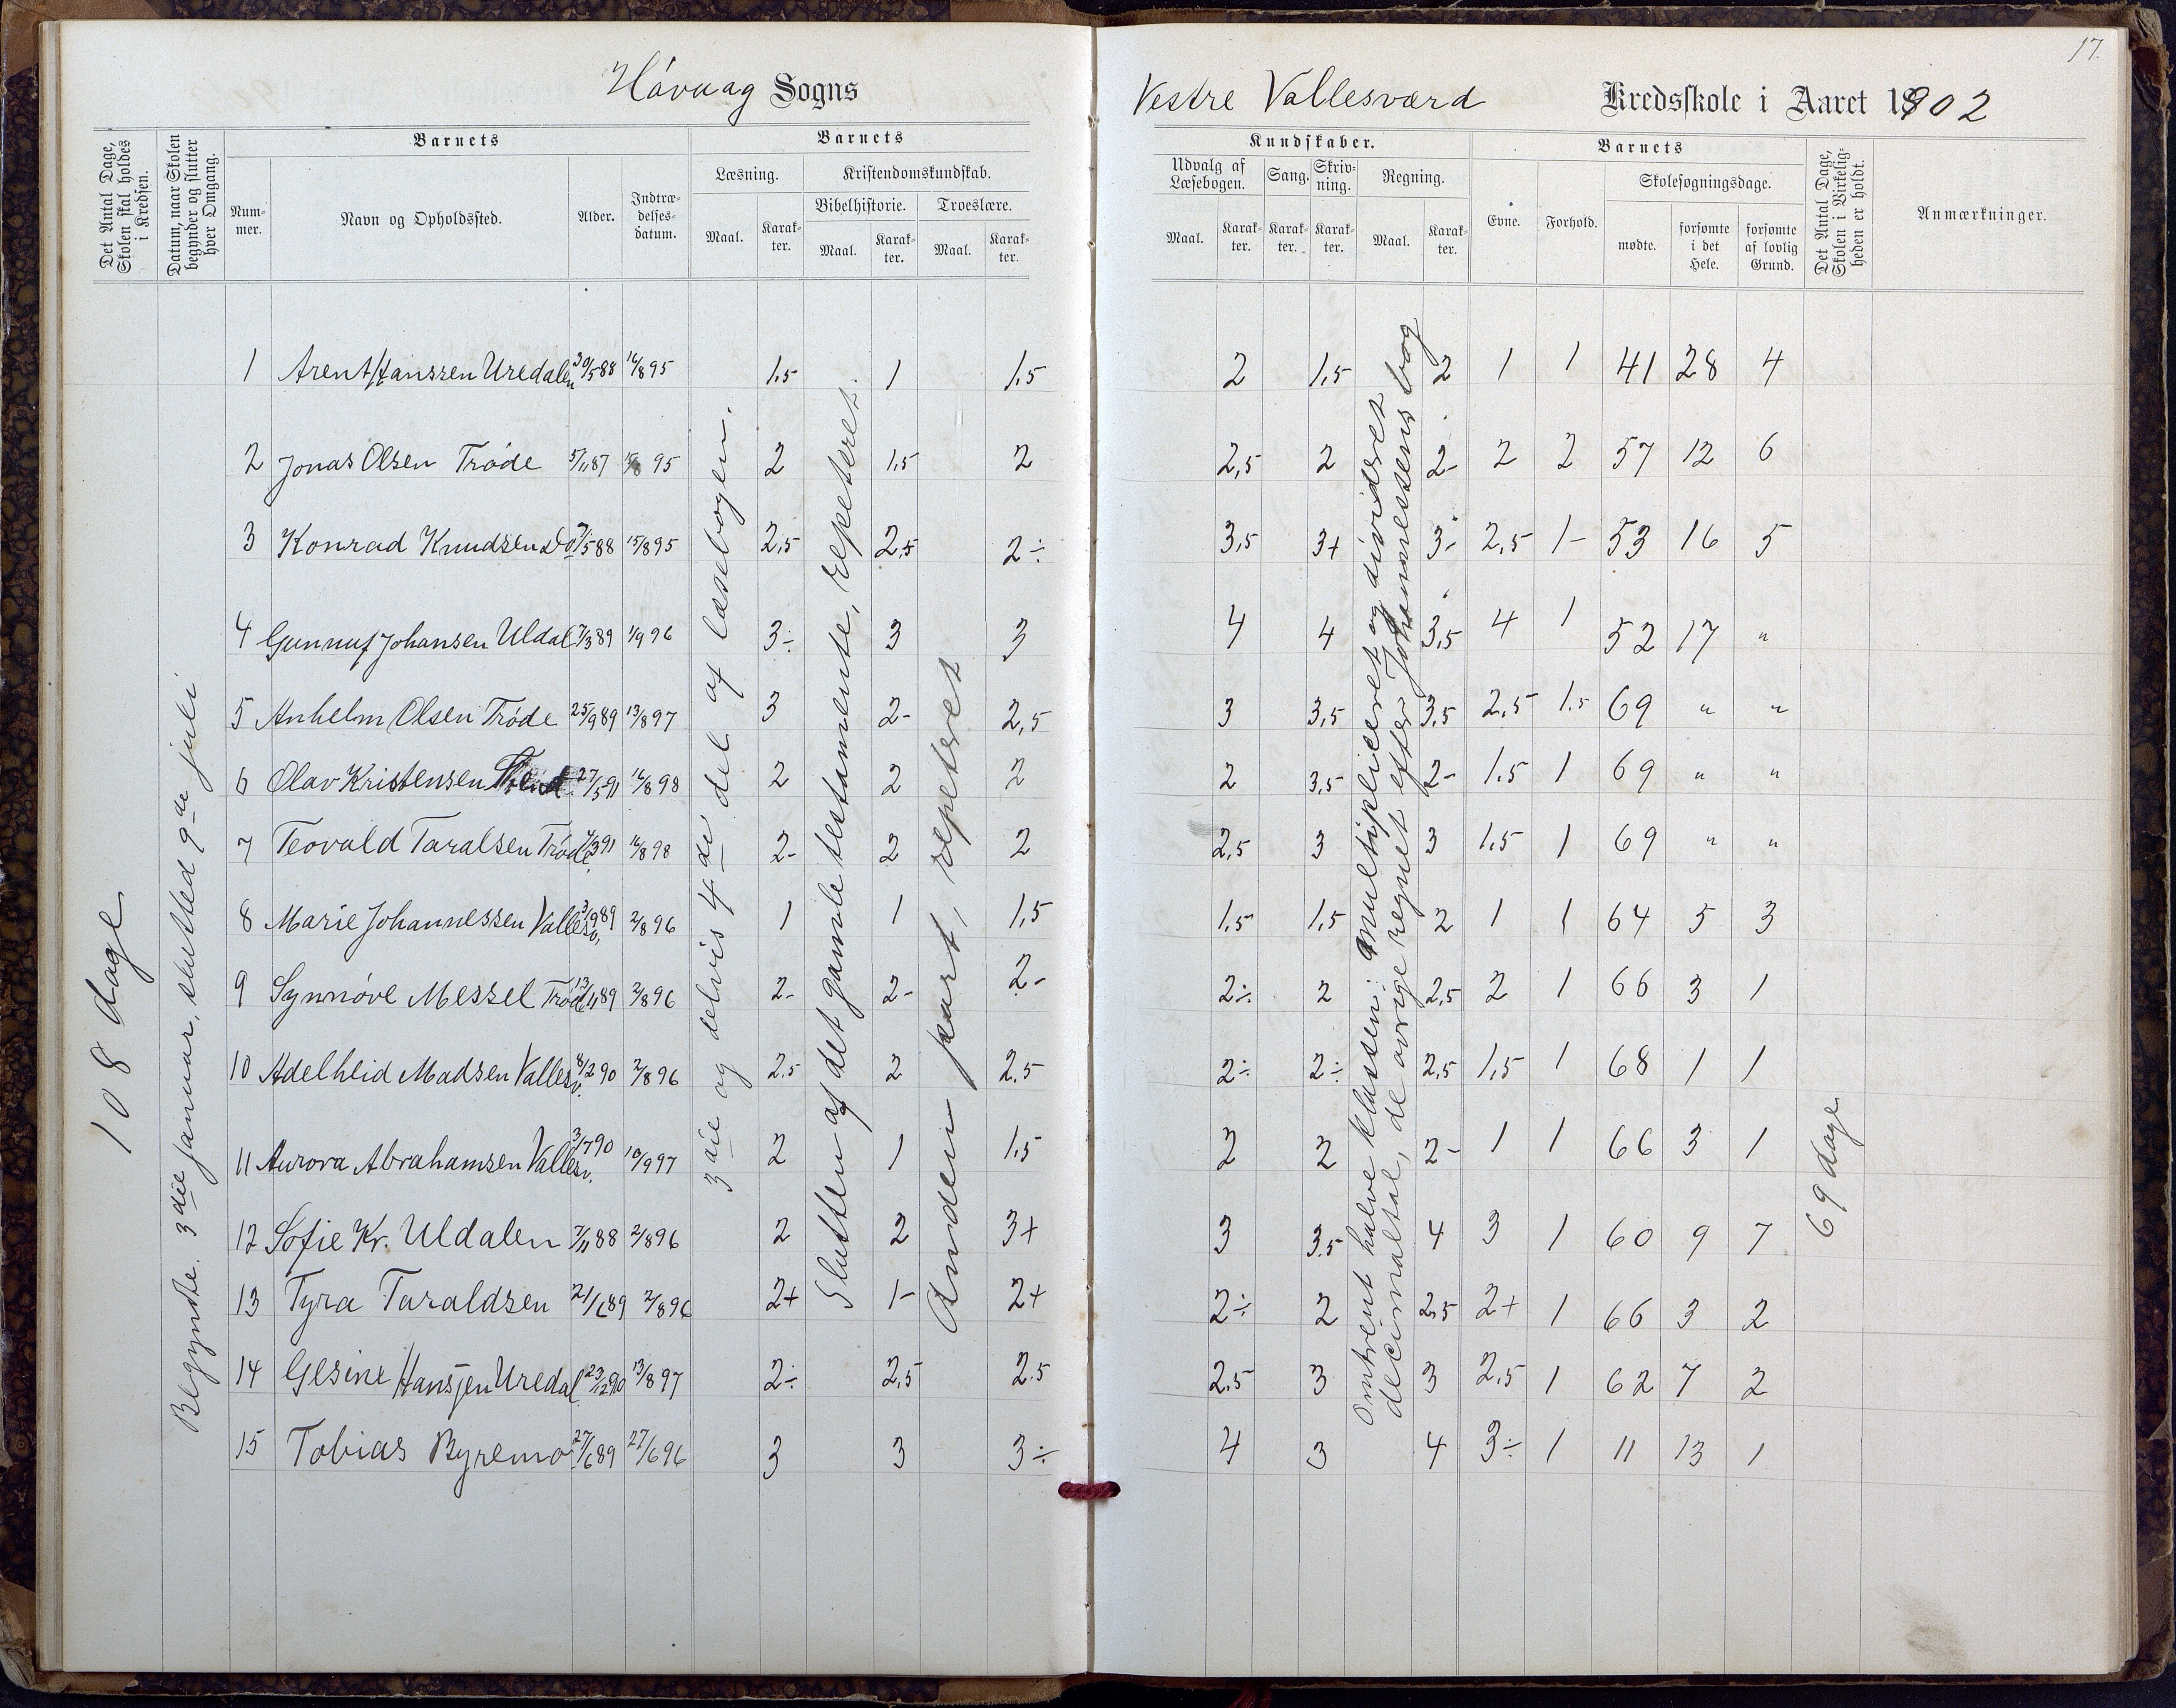 17.
Håvaag Sogns
Vestre Vallesværd Kredsskole i Aaret 1902
Det Antal Dage, Skolen skal holdes i Kredsen.
Datum, naar Skolen begynder og slutter hver Omgang.
Barnets
Num-mer.
Navn og Opholdssted.
Alder.
Indtræ-delses-datum.
Barnets
Læsning.
Maal.
Karak-ter.
Kristendomskundskab.
Bibelhistorie.
Maal.
Karak-ter.
Troeslære.
Maal.
Karak-ter.
Kundskaber.
Udvalg af Læsebogen.
Maal.
Karak-ter.
Sang.
Karak-ter.
Skriv-ning.
Karak-ter.
Regning.
Maal.
Karak-ter.
Barnets
Evne.
Forhold.
Skolesøgningsdage.
mødte.
forsømte i det Hele.
forsømte af lovlig Grund.
Det Antal Dage, Skolen i Virkelig-heden er holdt.
Anmærkninger.
108 dage
Begyndte 3die januar, slutted 9de juli
3die og delvis 4de del af læsebogen.
Slutten af det gamle testamente, repeteret.
Anden part, repeteret
Omtrent halve klassen: multipliceret og divideret
decimaltal, de øvrige regnet efter Johannessens bog
69 dage
1 Arent Hanssen Uredalen 30/5 88 16/8 95 1,5 1 1,5 2 1,5 2 1 1 41 28 4
2 Jonas Olsen Trøde 5/11 87 15/8 95 2 1,5 2 2,5 2 2- 2 2 57 12 6
3 Konrad Knudsen do 7/5 88 15/8 95 2,5 2,5 2÷ 3,5 3+ 3- 2,5 1- 53 16 5
4 Gunnuf Johansen Uldal 7/3 89 1/9 96 3÷ 3 3 4 4 3,5 4 1 52 17 "
5 Anhelm Olsen Trøde 25/9 89 13/8 97 3 2- 2,5 3 3,5 3,5 2,5 1.5 69 " "
6 Olav Kristensen 27/5 91 16/8 98 2 2 2 2 3,5 2- 1.5 1 69 " "
7 Teovald Taralsen Trøde 4/3 91 16/8 98 2- 2 2 2,5 3 3 1,5 1 69 " "
8 Marie Johannessen Vallesv. 3/9 89 2/8 96 1 1 1,5 1,5 1,5 2 1 1 64 5 3
9 Synnøve Messel Trøde 13/11 89 2/8 96 2- 2- 2- 2÷ 2 2,5 2 1 66 3 1
10 Adelheid Madsen Vallesv. 8/2 90 2/8 96 2.5 2 2,5 2÷ 2÷ 2,5 1,5 1 68 1 1
11 Aurora Abrahamsen Vallesv. 3/7 90 10/9 97 2 1 1,5 2 2 2- 1 1 66 3 1
12 Sofie Kr. Uldalen 7/11 88 2/8 96 2 2 3+ 3 3.5 4 3 1 60 9 7
13 Tyra Taraldsen 21/6 89 2/8 96 2+ 1- 2+ 2÷ 2 2,5 2+ 1 66 3 2
14 Gesine Hansen Uredal 23/12 90 13/8 97 2÷ 2,5 2.5 2,5 3 3 2,5 1 62 7 2
15 Tobias Byremo 27/6 89 27/6 96 3 3 3÷ 4 3 4 3÷ 1 11 13 1